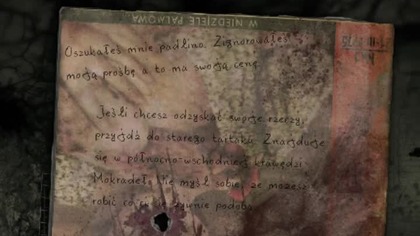 W NIEDZIELĘ PALMOWĄ
Oszukałeś mnie padlino. Zignorowałeś
moją prośbę a to ma swoją cenę.
Jeśli chcesz odzyskać swoje rzeczy,
przyjdź do starego tartaku. Znajduje
się w północno-wschodniej krawędzi
Mokradeł. Nie myśl sobie, że możesz
robić co się podoba